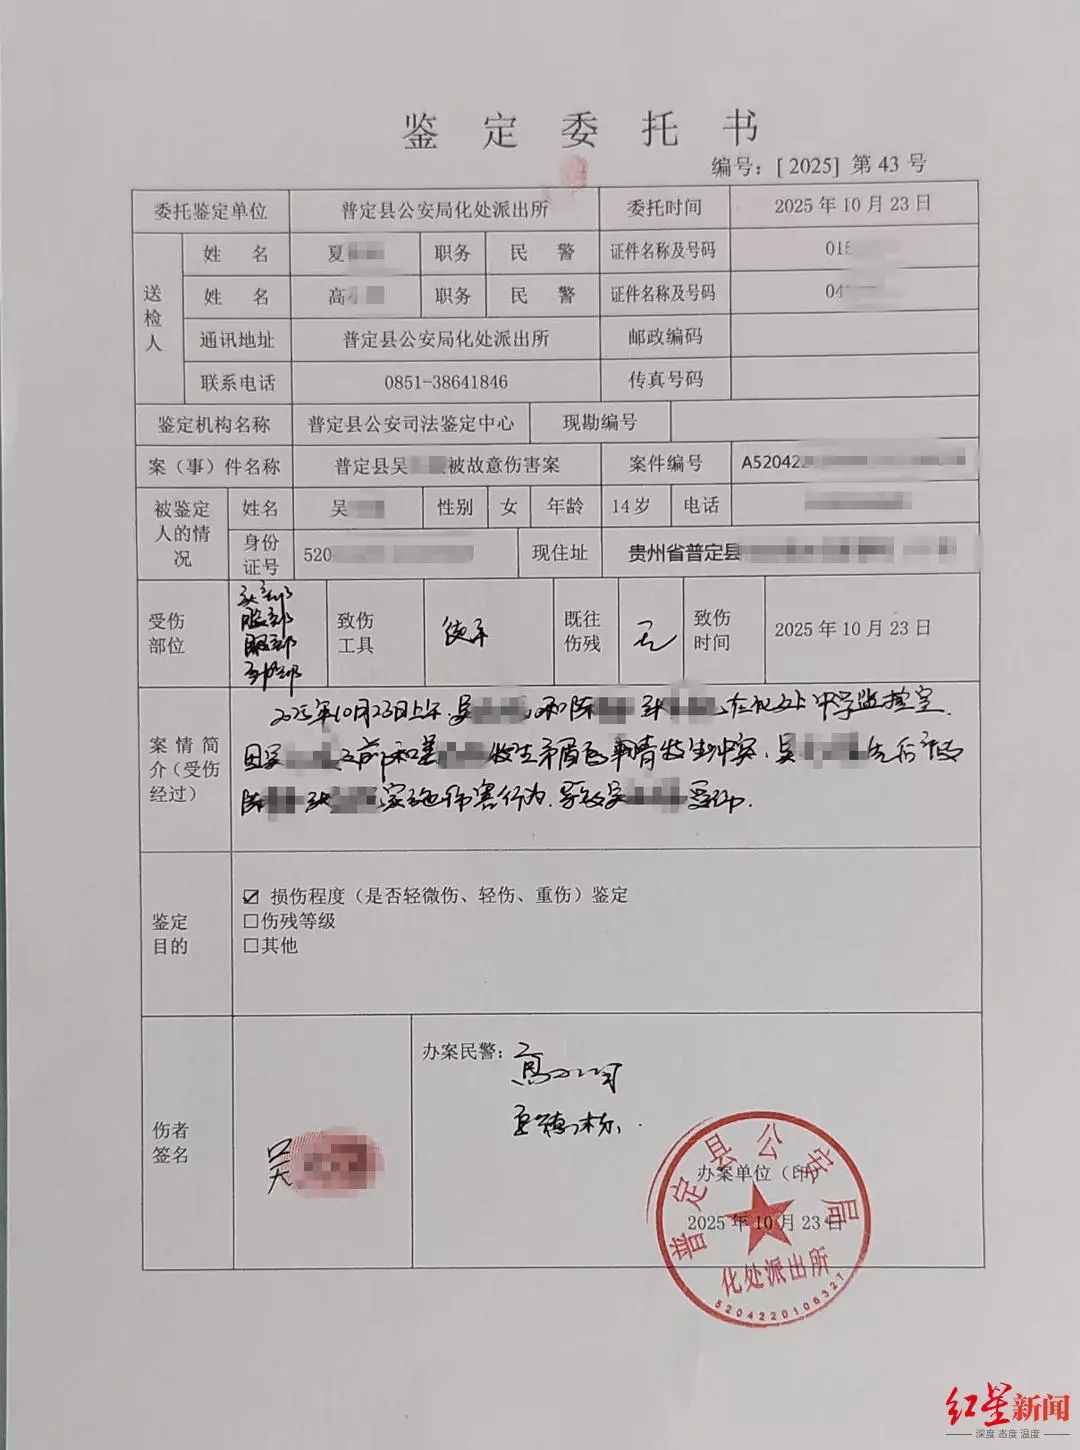 鉴定委托书
编号：[2025] 第 43 号
委托鉴定单位 普定县公安局化处派出所 委托时间 2025 年 10 月 23 日
送检人
姓名 夏 职务 民警 证件名称及号码 018
姓名 高 职务 民警 证件名称及号码 04
通讯地址 普定县公安局化处派出所 邮政编码
联系电话 0851-38641846 传真号码
鉴定机构名称 普定县公安司法鉴定中心 现勘编号
案（事）件名称 普定县吴 被故意伤害案 案件编号 A520422
被鉴定人的情况
姓名 吴 性别 女 年龄 14岁 电话
身份证号 520 现住址 贵州省普定县
受伤部位 头部 脸部 腿部 致伤工具 徒手 既往伤残 无 致伤时间 2025 年 10 月 23 日
案情简介（受伤经过）
2025年10月23日上午，吴 和陈 张 在化处中学监控室，
因吴 之前和姜 发生矛盾的事情发生冲突，吴 先后被
陈 张 实施伤害行为，导致吴 受伤。
鉴定目的
☑ 损伤程度（是否轻微伤、轻伤、重伤）鉴定
□伤残等级
□其他
伤者签名 吴
办案民警：高
办案单位（印）
2025 年 10 月 23 日
普定县公安局
化处派出所
5204220106327
红星新闻
深度 态度 温度